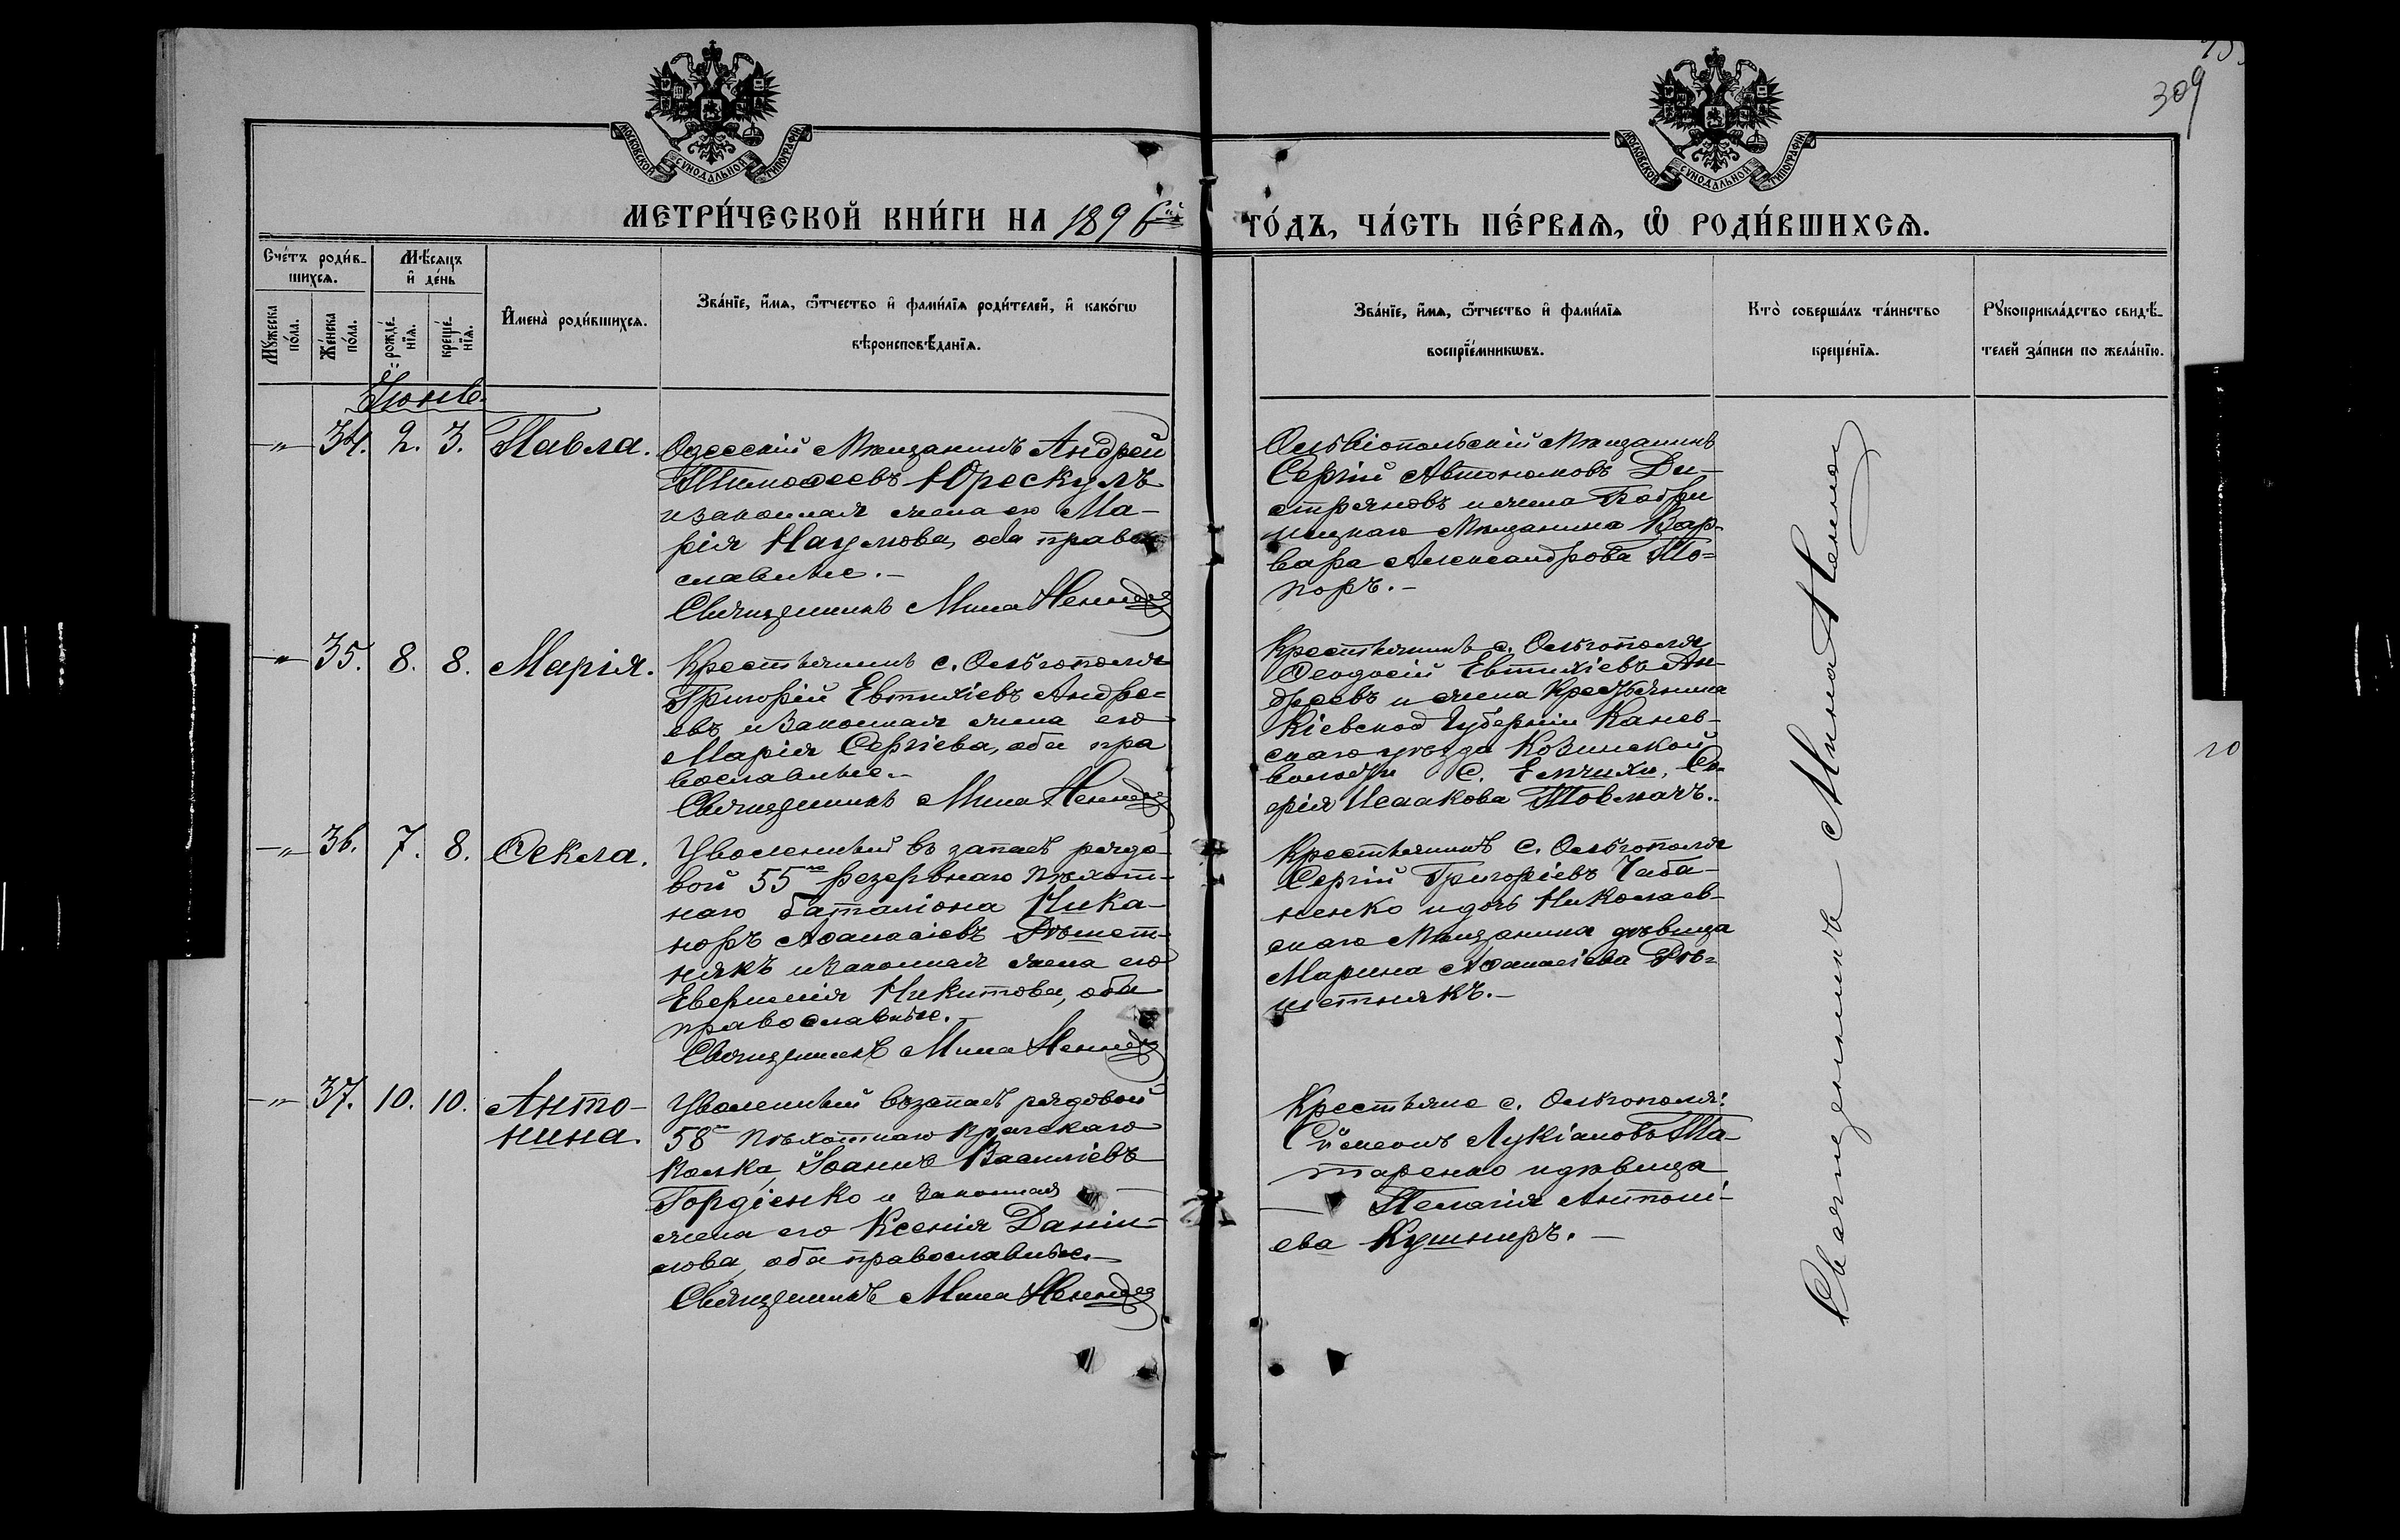 309
МОСКОВСКОЙ СѴНОДАЛЬНОЙ ТИПОГРАФІИ
МОСКОВСКОЙ СѴНОДАЛЬНОЙ ТИПОГРАФІИ
МЕТРИ́ЧЕСКОЙ КНИ́ГИ НА 1896й
ГО́ДЪ, ЧА́СТЬ ПЕ́РВАѦ, Ѡ РОДИ́ВШИХСѦ.
Сче́тъ роди́в-
шихсѧ.
Мꙋ́жеска по́ла.
Же́нска по́ла.
Мѣ́сѧцъ
и҆ де́нь
рожде́-
нїѧ.
креще́-
нїѧ.
И҆мена̀ роди́вшихсѧ.
Зва́нїе, и҆́мѧ, ѻ҆́тчество и҆ фами́лїѧ роди́телей, и҆ како́гѡ
вѣроисповѣ́данїѧ.
Зва́нїе, и҆́мѧ, ѻ҆́тчество и҆ фами́лїѧ
воспрїе́мникѡвъ.
Кто̀ соверша́лъ та́инство
креще́нїѧ.
Рꙋкоприкла́дство свидѣ́-
телей за́писи по жела́нїю.
Іюнь.
—„— 34. 2. 3. Павла.
Одесскій Мѣщанинъ Андрей
Тимоѳеевъ Юрескулъ
и законная жена его Ма-
рія Наумова, оба право-
славные.-
Священникъ Мина
Ольвіопольскій Мѣщанинъ
Сергій Автономовъ Ди-
стряновъ и жена Бобри
нецкаго Мѣщанина Вар-
вара Александрова То-
поръ.-
—„— 35. 8. 8. Марія.
Крестьянинъ с. Ольгополя
Григорій Евтихіевъ Андре-
евъ и законная жена его
Марія Сергіева, оба пра
вославные.-
Священникъ Мина
Крестьянинъ с. Ольгополя
Ѳеодосій Евтихіевъ Ан-
дреевъ и жена Крестьянина
Кіевской Губерніи Канев-
скаго уѣзда Козинской
волости С. Емчихи,
Исаакова Товмачъ.-
—„— 36. 7. 8. Ѳекла.
Уволенный въ запасъ рядо-
вой 55го резервнаго пѣхот-
наго баталіона Ника-
норъ Аѳанасіевъ Рѣшет-
някъ и законная жена его
Никитова, оба
православные.-
Священникъ Мина
Крестьянинъ С. Ольгополя
Сергій Григоріевъ Чаба-
ненко и дочь Николаев-
скаго Мѣщанина дѣвица
Марина Аѳанасіева Рѣ-
шетнякъ.-
—„— 37. 10. 10. Анто-
нина.
Уволенный въ запасъ рядовой
58го Пѣхотнаго Прагскаго
полка, Іоаннъ Василіевъ
Гордіенко и законная
жена его Ксенія Даніи-
лова, оба православные.-
Священникъ Мина
Крестьяне с. Ольгополя:
Сѵмеонъ Лукіановъ Та-
таренко и дѣвица
Пелагія Антоні-
ева Кушниръ.-
Священникъ Мина